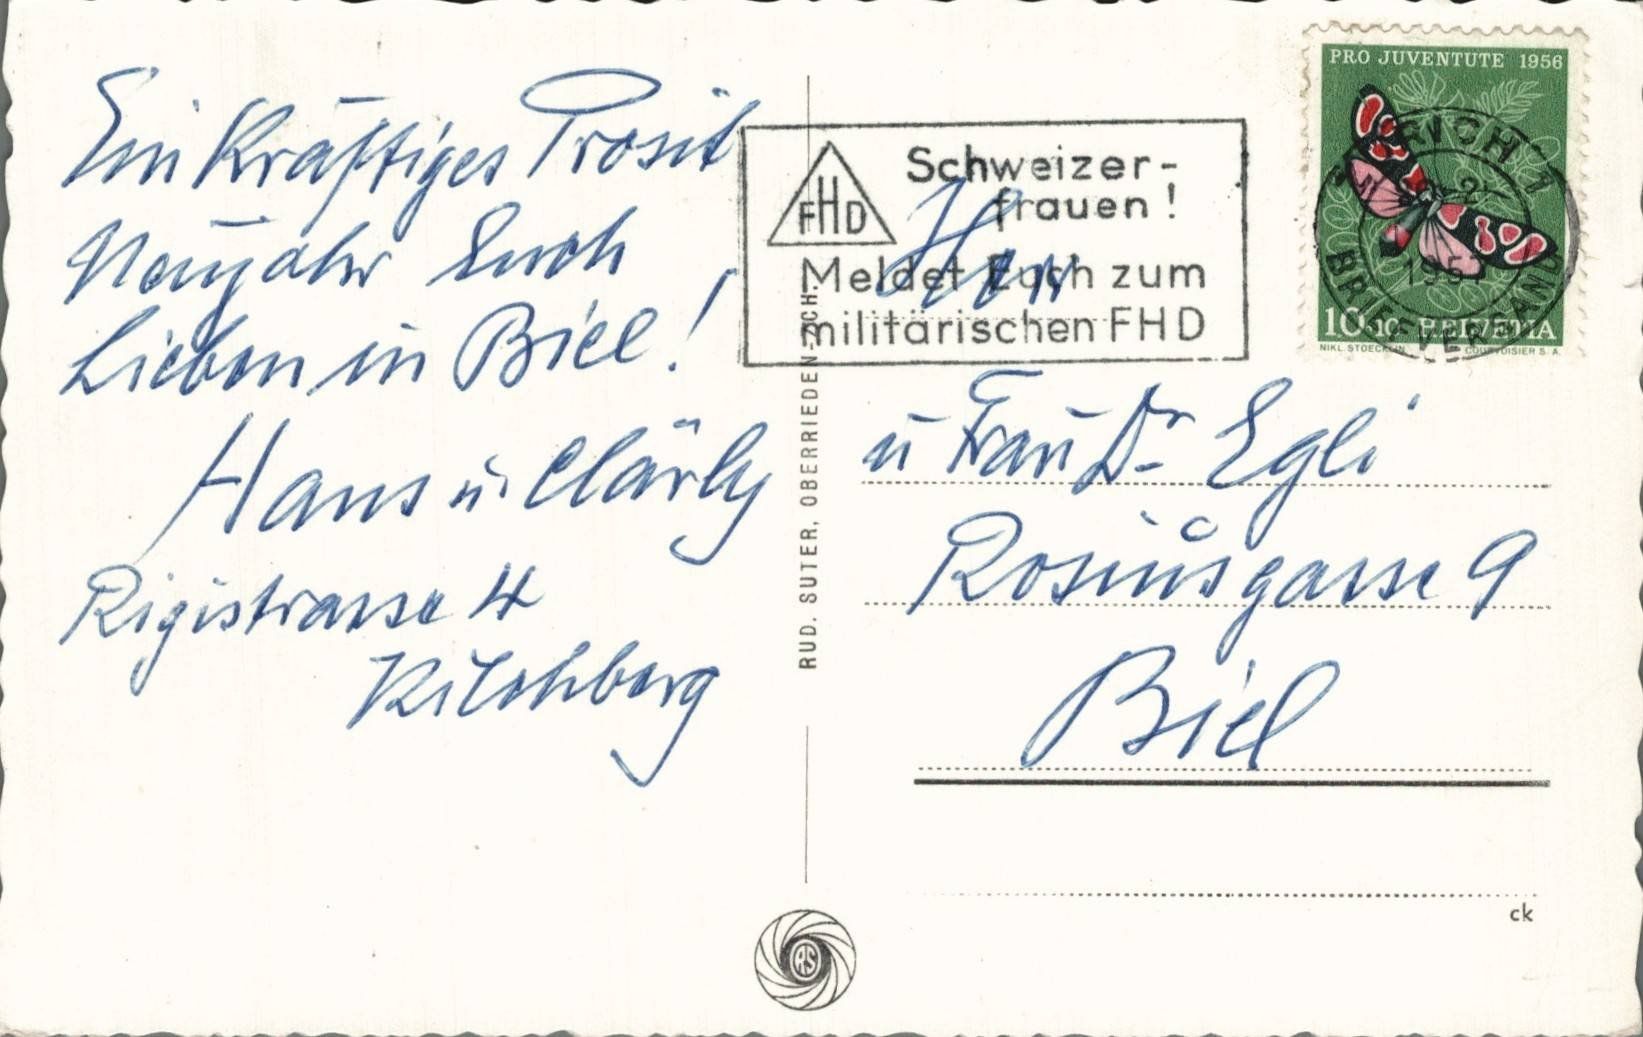 Ein kräftiges Prosit
Neujahr Euch
Lieben in Biel!
Hans u. Clärly
Rigistrasse 4
Kilchberg
RUD. SUTER, OBERRIEDEN-ZCH.
FHD
Schweizer-
frauen!
Meldet Euch zum
militärischen FHD
PRO JUVENTUTE 1956
ZÜRICH 1
1957
BRIEFVERSAND
10+10 HELVETIA
NIKL. STOECKLIN COURVOISIER S. A.
Herr
u Frau Dr Egli
Rosiusgasse 9
Biel
ck
RS